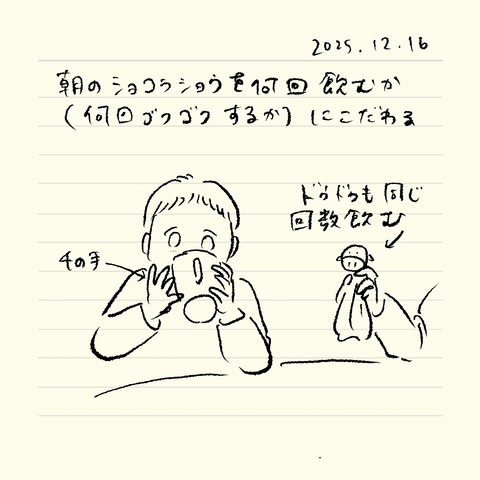 2025.12.16
朝のショコラショウを何回飲むか
(何回ゴクゴクするか)にこだわる
ドゥドゥも同じ
回数飲む
チの手